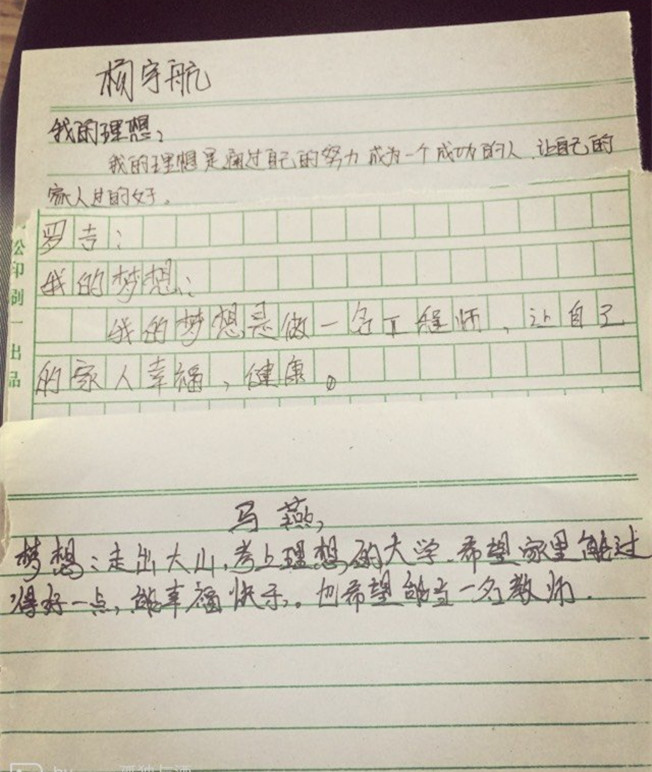 杨宇航
我的理想:
我的理想是通过自己的努力成为一个成功的人.让自己的
家人过的好。
罗吉:
我的梦想:
我的梦想是做一名工程师,让自己
的家人幸福,健康。
松印刷一出品
马燕,
梦想:走出大山,考上理想的大学.希望家里能过
得好一点,能幸福快乐。也希望能当一名教师.
by
孤独与酒